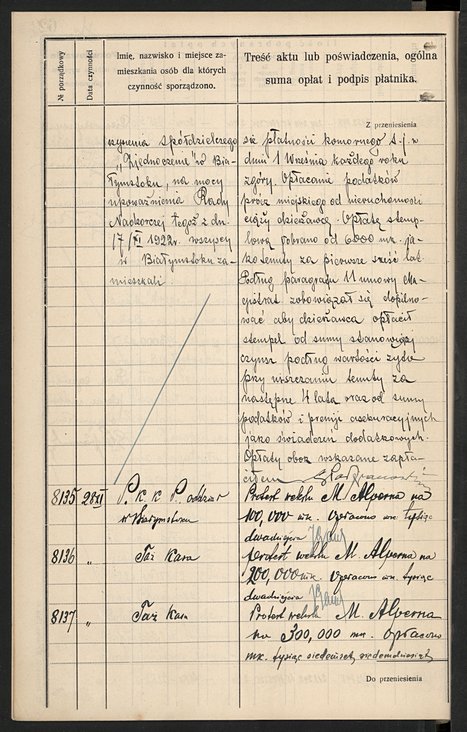 № porządkowy
Data czynności
Imię, nazwisko i miejsce za-
mieszkania osób dla których
czynność sporządzono.
Treść aktu lub poświadczenia, ogólna
suma opłat i podpis płatnika.
Z przeniesienia
spółdzielczego
"Zjednoczenie" w Bia-
łymstoku, na mocy
upoważnienia Rady
Nadzorczej tegoż z dn.
17/XI 1922r. wszyscy
w Białymstoku za-
mieszkali.
się płatności komornego t.j. w
dniu 1 Września każdego roku
zgóry. Opłacanie podatków
prócz miejskiego od nieruchomości
ciąży dzierżawcę. Opłatę stemp-
lową pobrano od 6000 mk. ja-
ko tenuty za pierwsze sześć lat.
Podług paragrafu 11 umowy Ma-
gistrat zobowiązał się dopilno-
wać aby dzierżawca opłacił
stempel od sumy stanowiącej
czynsz podług wartości żyta
przy uiszczaniu tenuty za
następne 4 lata oraz od sumy
podatków i premji asekuracyjnych
jako świadczeń dodatkowych.
Opłaty oboz wskazane zapła-
ciłem
8135 28XI P. K. K. P. oddział
w Białymstoku
Protest wekslu M. Alperna na
100,000 mk. Opłacono mk. tysiąc
dwadzieścia
8136 " Taż Kasa
Protest wekslu M. Alperna na
200,000 mk. Opłacono mk. tysiąc
dwadzieścia
8137 " Taż Kasa
Protest wekslu M. Alperna
na 300,000 mk. Opłacono
mk. tysiąc siedemset siedemdziesiąt
Do przeniesienia